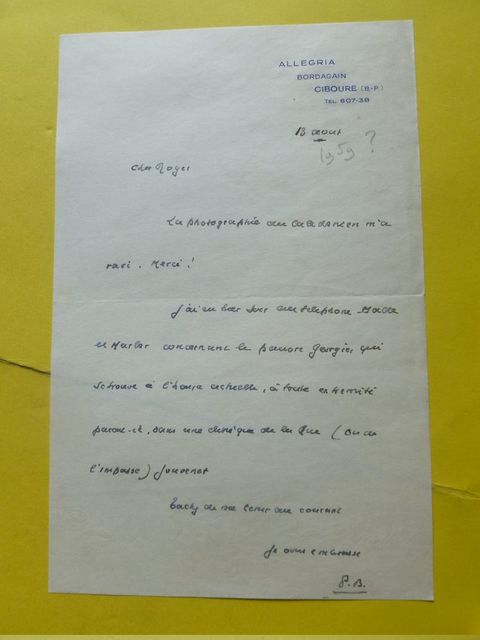 ALLEGRIA
BORDAGAIN
CIBOURE (B-P.)
TEL: 607-38
13 aout
1959 ?
Cher Roger
La photographie du m'a
ravi. Merci!
J'ai eu hier soir au telephone
et concernant le pauvre Georges qui
se trouve à l'heure actuelle, à toute extremité
parait-il, dans une clinique de la rue (ou de
l'impasse) Jouvenet
de me tenir au courant
Je vous embrasse
P.B.